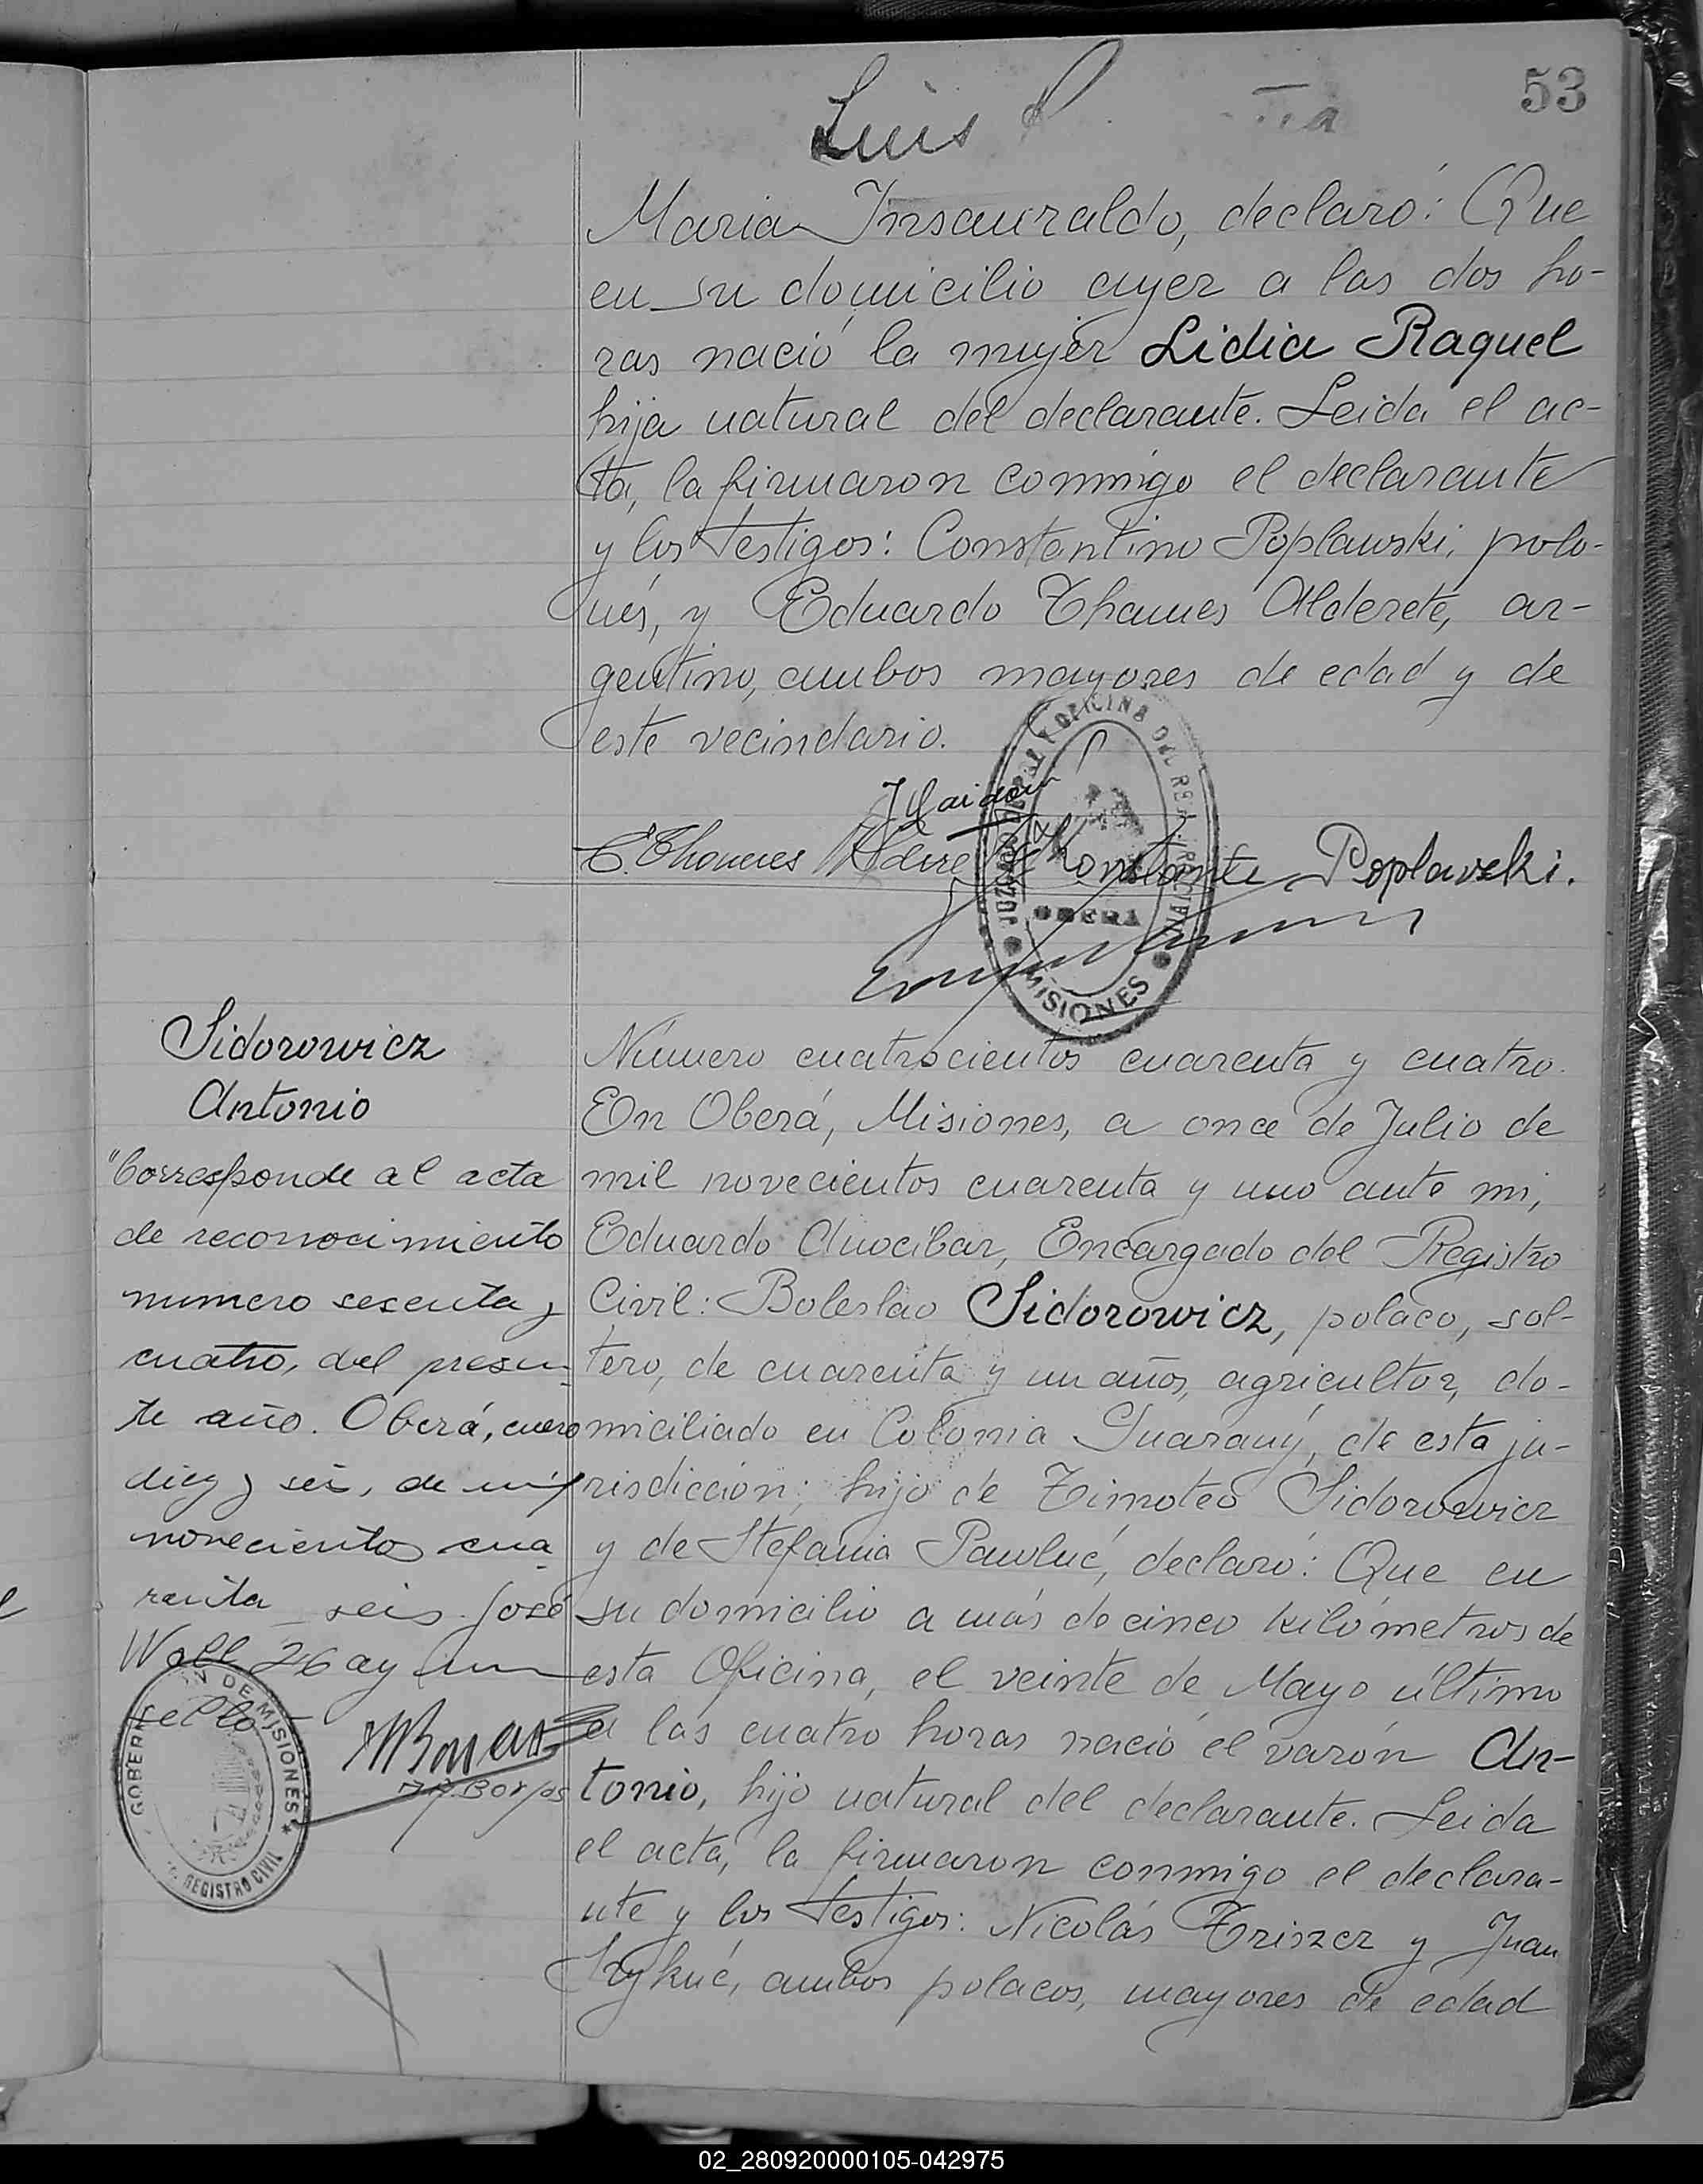 53
Luis
Maria Insaurraldo, declaró: Que
en su domicilio ayer a las dos ho-
ras nació la mujer Lidia Raquel
hija natural del declarante. Leida el ac-
ta, la firmaron conmigo el declarante
y los testigos: Constantino Poplawski, polo-
nés, y Eduardo Thames Alderete, ar-
gentino, ambos mayores de edad y de
este vecindario.
OFICINA DEL REG. CIVIL
OBERÁ
MISIONES
E. Thames Konstante Poplavski.
Sidorowicz
Antonio
"Corresponde al acta
de reconocimiento
numero sesenta y
cuatro, del presen-
te año. Oberá, enero
diez y seis, de mil
novecientos cua-
renta seis. José
Woll 26 ay un
sello
GOBERN N DE MISIONES
REGISTRO CIVIL
Número cuatrocientos cuarenta y cuatro.
En Oberá, Misiones, a once de Julio de
mil novecientos cuarenta y uno ante mi,
Eduardo Anocibar, Encargado del Registro
Civil: Boleslao Sidorowicz, polaco, sol-
tero, de cuarenta y un años, agricultor, do-
miciliado en Colonia Guarany, de esta ju-
risdicción; hijo de Timoteo Sidorowicz
y de Stefania Pawluć, declaró: Que en
su domicilio a más de cinco kilómetros de
esta Oficina, el veinte de Mayo último
a las cuatro horas nació el varón An-
tonio, hijo natural del declarante. Leida
el acta, la firmaron conmigo el declara-
nte y los testigos: Nicolás Triszcz y Juan
ambos polacos, mayores de edad
02_280920000105-042975